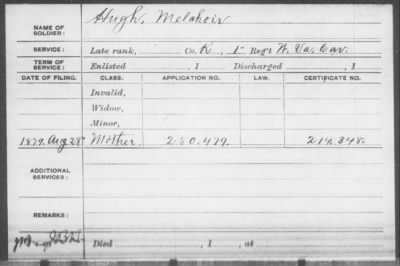 Hugh, Melchoir
NAME OF SOLDIER:
SERVICE: Late rank, Co. K, 1st Reg't W. Va. Cav.
TERM OF SERVICE: Enlisted , 1 Discharged , 1
DATE OF FILING. CLASS. APPLICATION NO. LAW. CERTIFICATE NO.
Invalid,
Widow,
Minor,
1879. Aug 28 Mother 250.479. 214.348.
ADDITIONAL SERVICES:
REMARKS:
Died , 1 , at